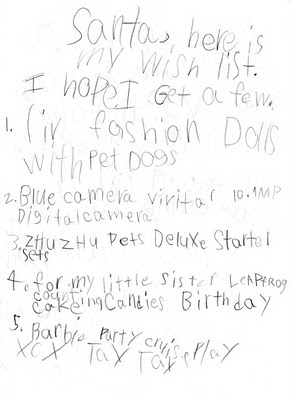 Santa, here is
my wish list.
I hope I get a few.
1. Liv fashion Dolls
with Pet Dogs
2. Blue camera vivitar 10.1MP
Digital camera
3. ZHU ZHU Pets Deluxe Starter
sets
4. for my little sister LeAPFROG
counting Candies Birthday
cake
5. Barbie Party cruise Play
XCX TAX TAX